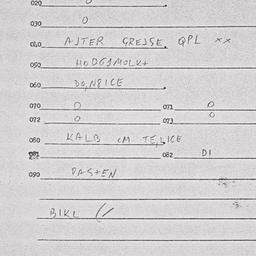 020 0
030 0
040 AJTER GREJSE QPL xx
050 HODGJMOLK+
060 DO,N8ICE
070 0 071 0
072 0 073 0
080 KALB CM TE,LICE
082 DI
090 PASTEN
BIKL //